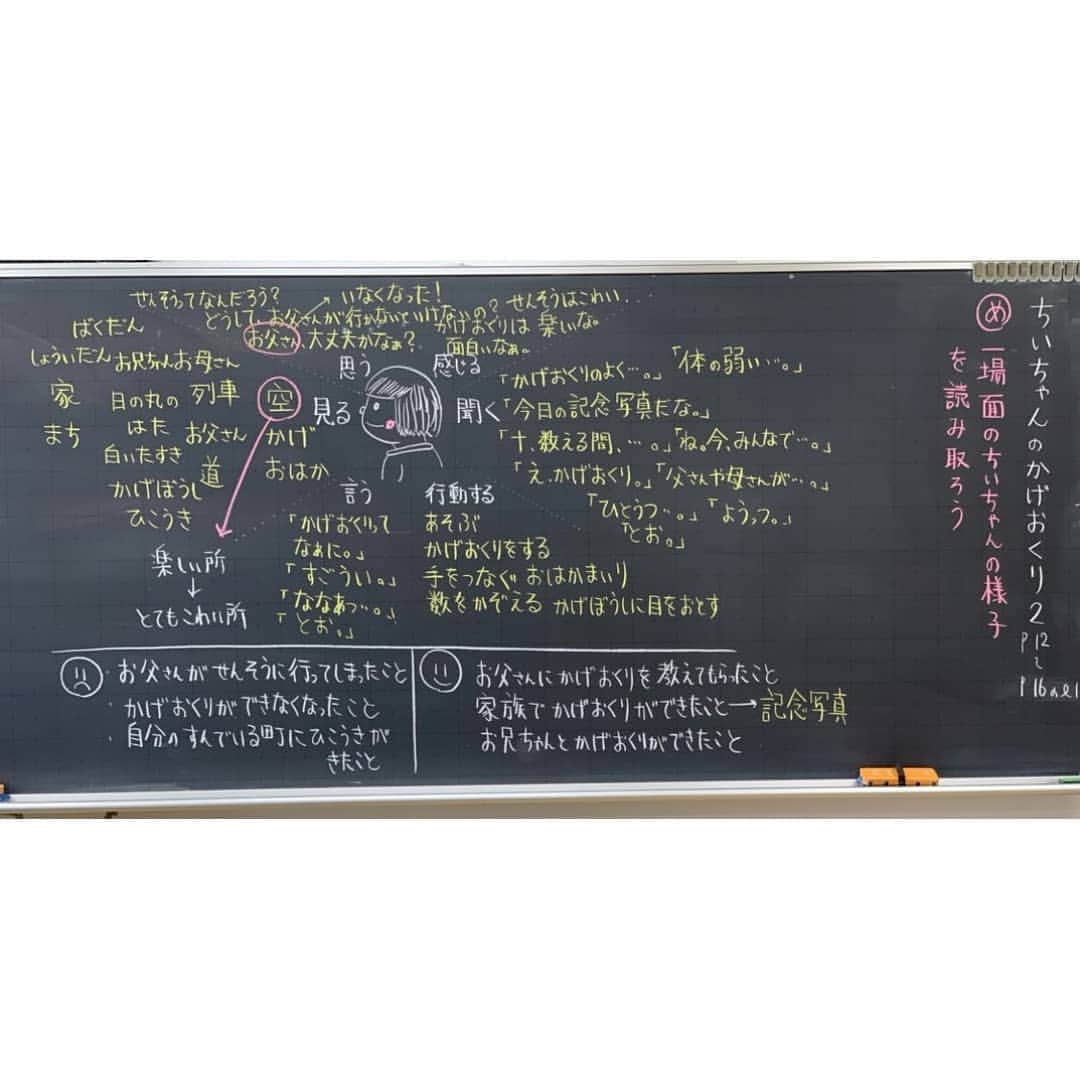 ちいちゃんのかげおくり2
P12
〜
P16の l1
め 一場面のちいちゃんの様子
を読み取ろう
せんそうってなんだろう?
いなくなった!
どうして、お父さんが行かないといけないの?
せんそうはこわい...
お父さん、大丈夫かなぁ?
かげおくりは 楽しいな。
面白いなぁ。
思う
感じる
見る
聞く
言う
行動する
ばくだん
しょういだん
お兄ちゃん
お母さん
家
まち
日の丸の
はた
列車
お父さん
白いたすき
道
かげぼうし
ひこうき
空
かげ
おはか
楽しい所
↓
とてもこわい所
「かげおくりのよく…。」
「体の弱い…。」
「今日の記念写真だな。」
「十、数える間、…。」
「ね。今、みんなで…。」
「え、かげおくり。」
「父さんや母さんが…。」
「ひとうつ…。」
「ようっつ。」
「とお。」
「かげおくりって
なぁに。」
「すごうい。」
「ななあつ…。」
「とお。」
あそぶ
かげおくりをする
手をつなぐ おはかまいり
数をかぞえる かげぼうしに目をおとす
・お父さんがせんそうに行ってしまったこと
・かげおくりができなくなったこと
・自分のすんでいる町にひこうきが
きたこと
お父さんにかげおくりを教えてもらったこと
家族でかげおくりができたこと→記念写真
お兄ちゃんとかげおくりができたこと